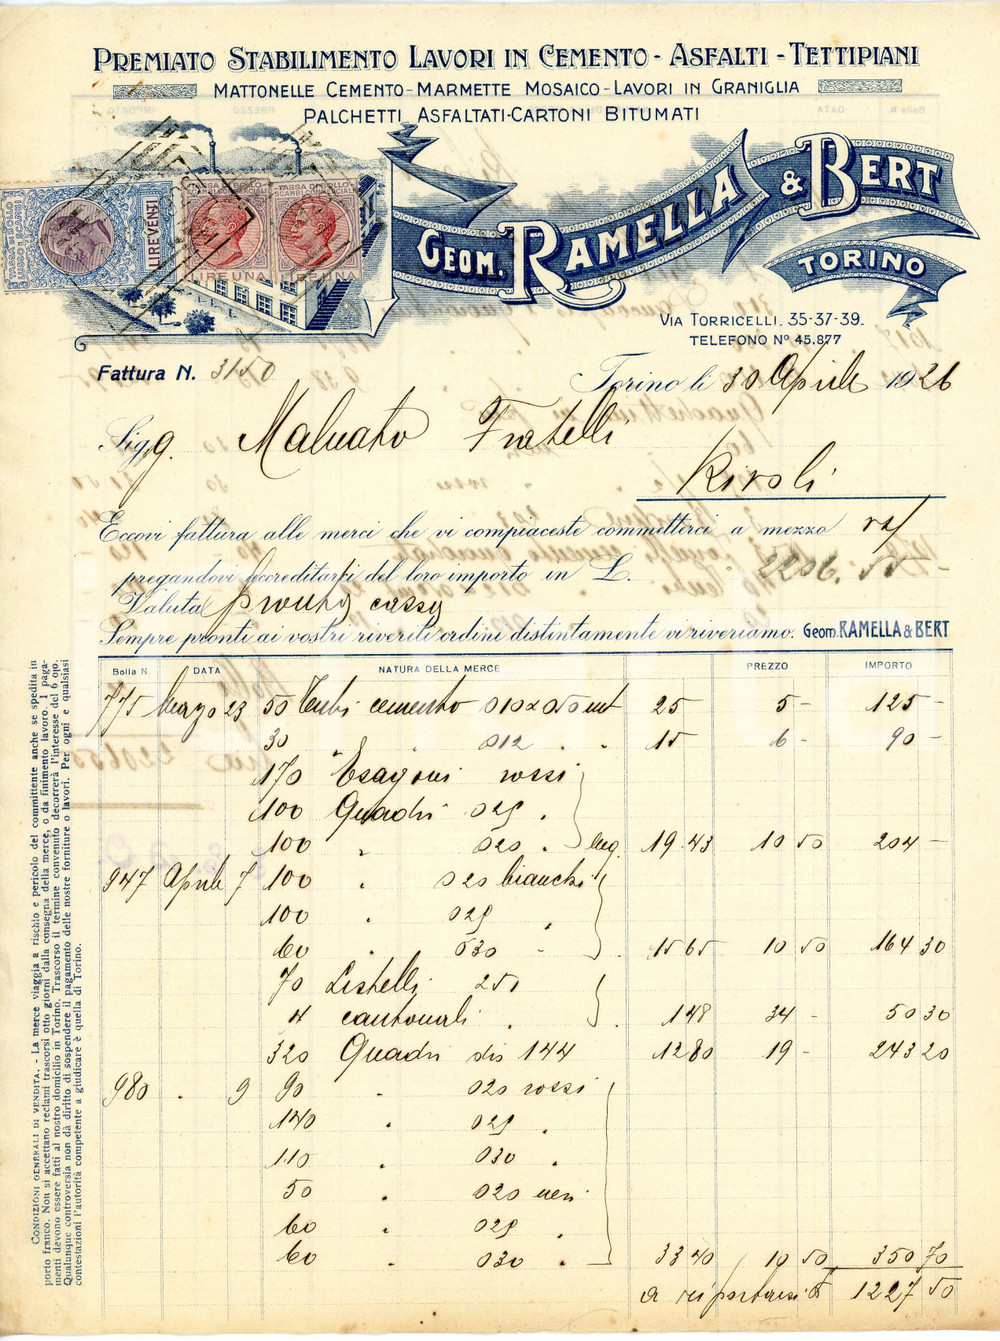 PREMIATO STABILIMENTO LAVORI IN CEMENTO - ASFALTI - TETTIPIANI
MATTONELLE CEMENTO - MARMETTE MOSAICO - LAVORI IN GRANIGLIA
PALCHETTI ASFALTATI - CARTONI BITUMATI
GEOM. RAMELLA & BERT
TORINO
LIRE VENSI
LIRE UNA
LIRE UNA
VIA TORRICELLI, 35-37-39.
TELEFONO No 45.877
Fattura N. 3150
Torino li 30 Aprile 1926
Sigg. Maluato Fratelli
Rivoli
Eccovi fattura alle merci che vi compiaceste commetterci a mezzo
pregandovi accreditarci del loro importo in L. 2206.55
Valuta pronta cassa
Sempre pronti ai vostri riveriti ordini distintamente vi riveriamo. Geom. RAMELLA & BERT
Bolla N. DATA NATURA DELLA MERCE PREZZO IMPORTO
775 Marzo 23 50 Tubi cemento 010x050 mt 25 5 - 125 -
30 " 012 " " 15 6 - 90 -
170 Esagoni rossi
100 Quadri 025 "
100 " 020 " mq. 19.43 10 50 204 -
947 Aprile 7 100 " 020 bianchi
100 " 025 "
60 " 030 " 15 65 10 50 164 30
70 Listelli 250
4 cantonali " 148 34 - 50 30
320 Quadri dis 144 1280 19 - 243 20
980 " 9 90 " 020 rossi
140 " 025 "
110 " 030 "
50 " 020 neri
60 " 025 "
60 " 030 " 33 40 10 50 350 70
a riportarsi £ 1227 50
CONDIZIONI GENERALI DI VENDITA. - La merce viaggia a rischio e pericolo del committente anche se spedita in
porto franco. Non si accettano reclami trascorsi otto giorni dalla consegna della merce, o da finimento lavoro. I paga-
menti devono essere fatti al nostro domicilio in Torino. Trascorso il termine convenuto decorrerà l'interesse del 6 o|o.
Qualunque controversia non dà diritto di sospendere il pagamento delle nostre forniture o lavori. Per ogni e qualsiasi
contestazioni l'autorità competente a giudicare è quella di Torino.